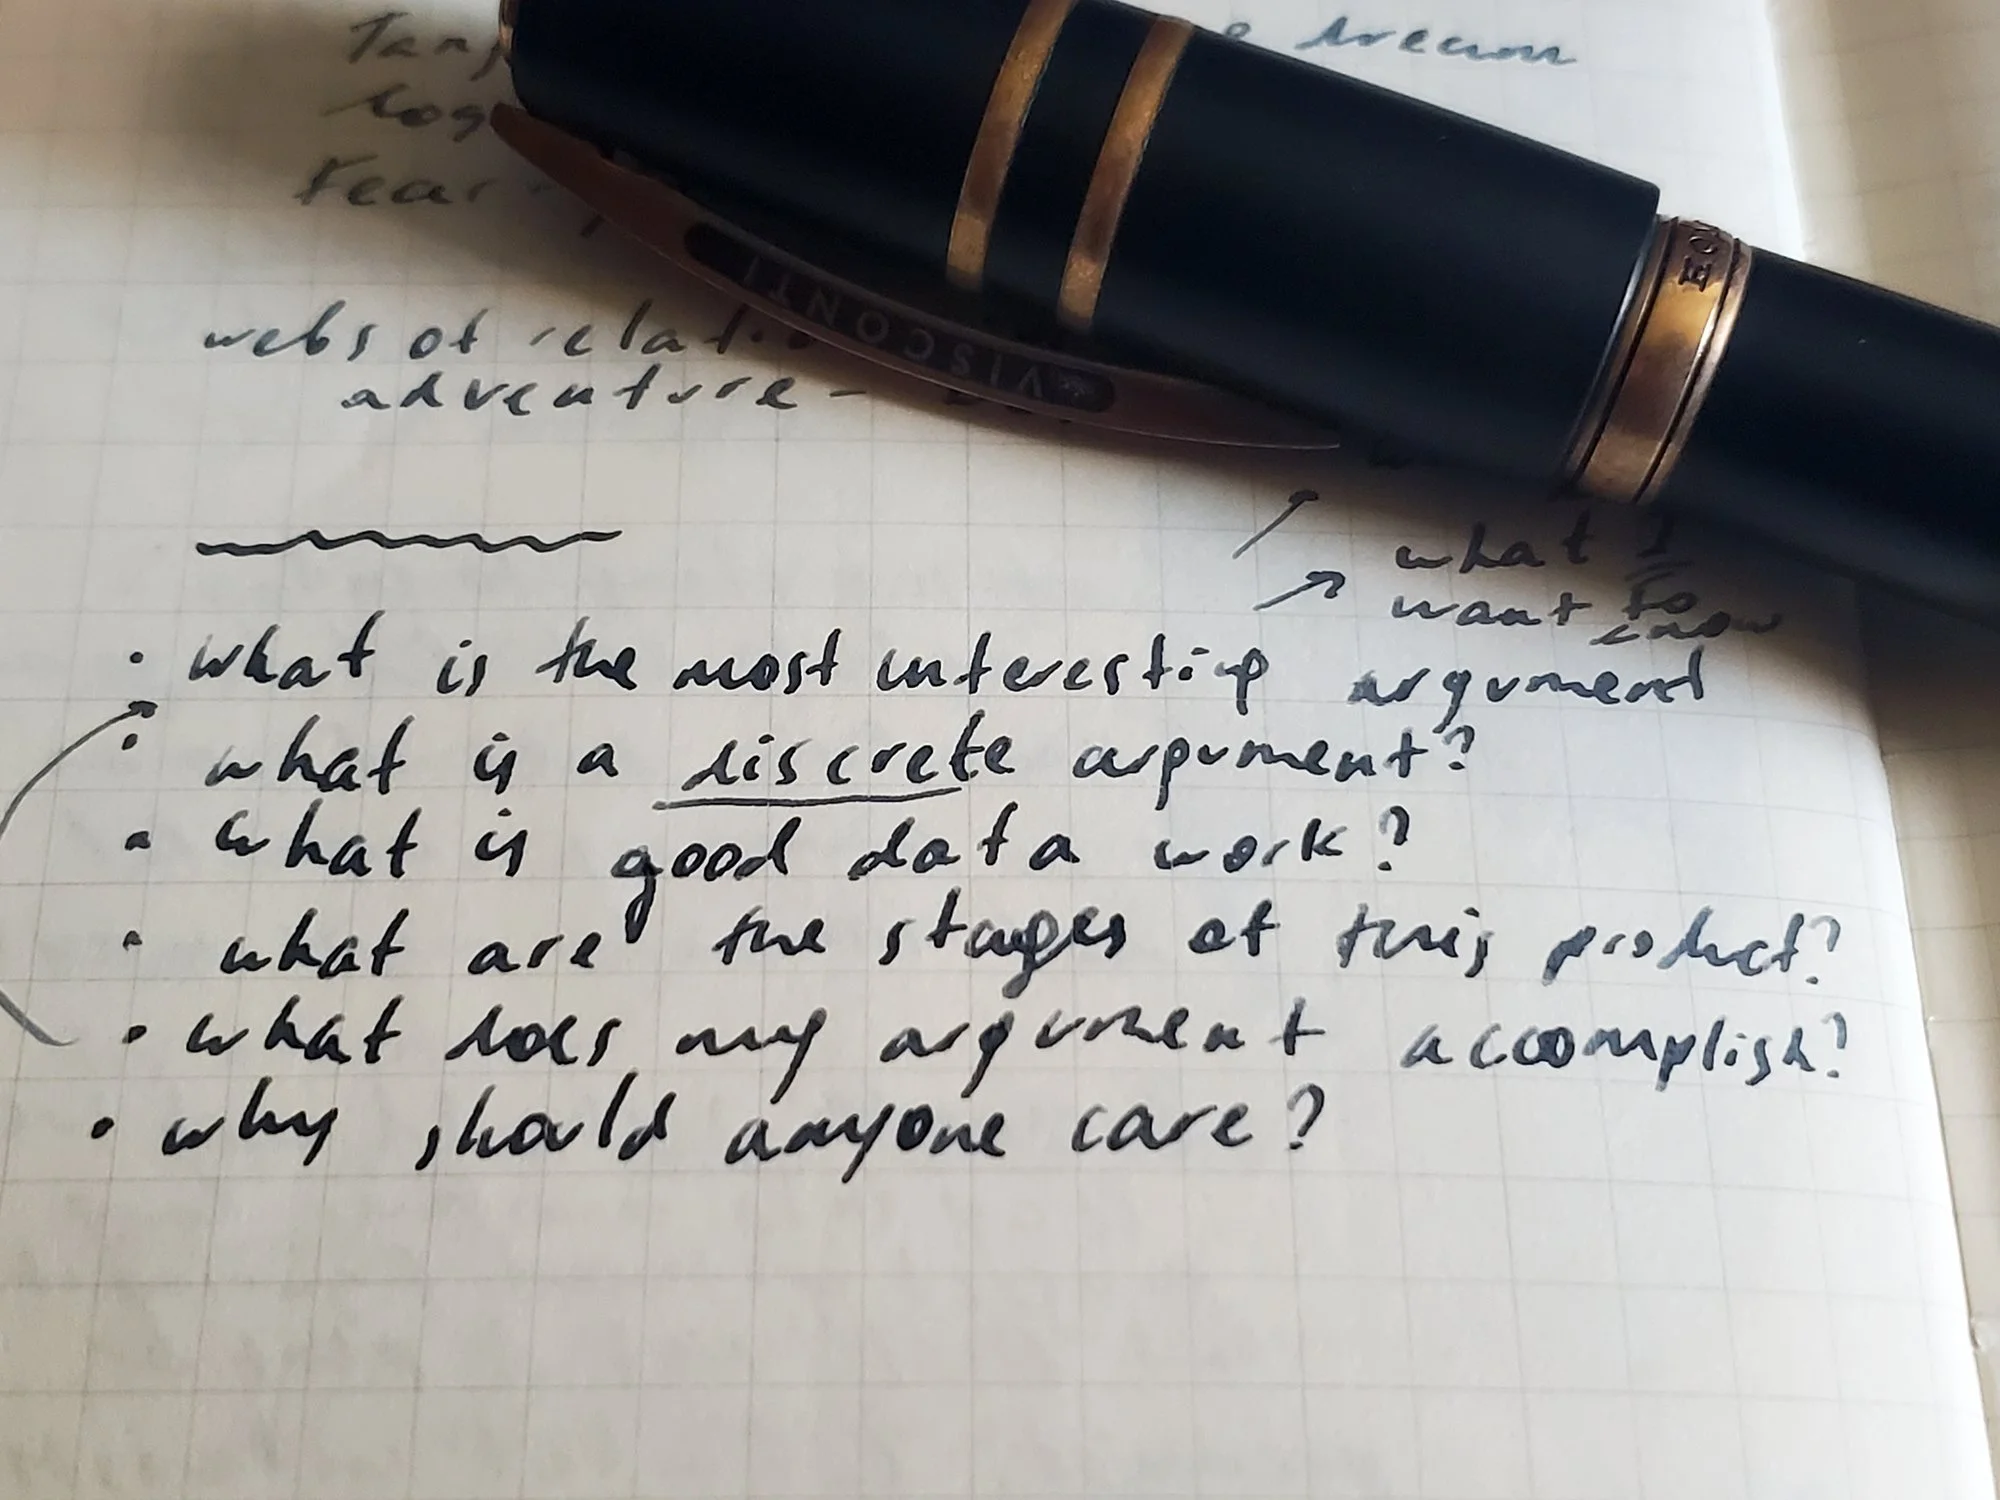 dream
webs of
adventure -
VISCONTI
what I
want to
know
• what is the most interesting argument
• what is a discrete argument?
• what is good data work?
• what are the stages of this product?
• what does my argument accomplish?
• why should anyone care?